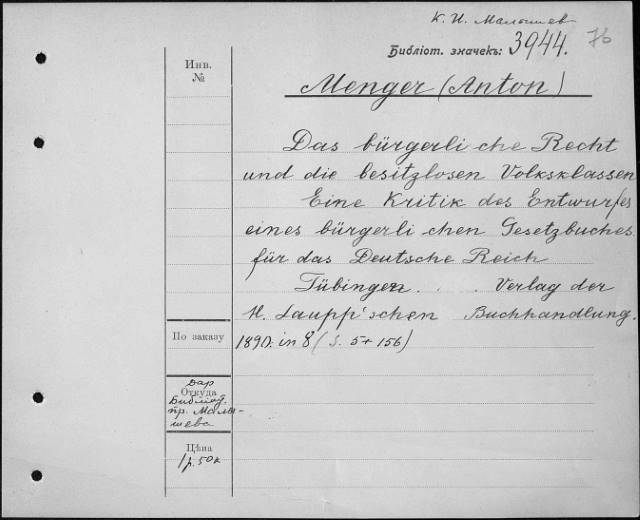 К. И. Малышев
Библіот. значекъ: 3944. 76
Инв.
№
Menger (Anton)
Das bürgerliche Recht
und die besitzlosen Volksklassen
Eine Kritik des Entwurfes
eines bürgerlichen Gesetzbuches
für das Deutsche Reich
Tübingen . . . Verlag der
H. Laupp'schen Buchhandlung.
По заказу
1890. in 8 (S. 5 + 156)
Откуда
Дар
Библиот.
пр. Малы-
шева
Цѣна
1 р. 50 к